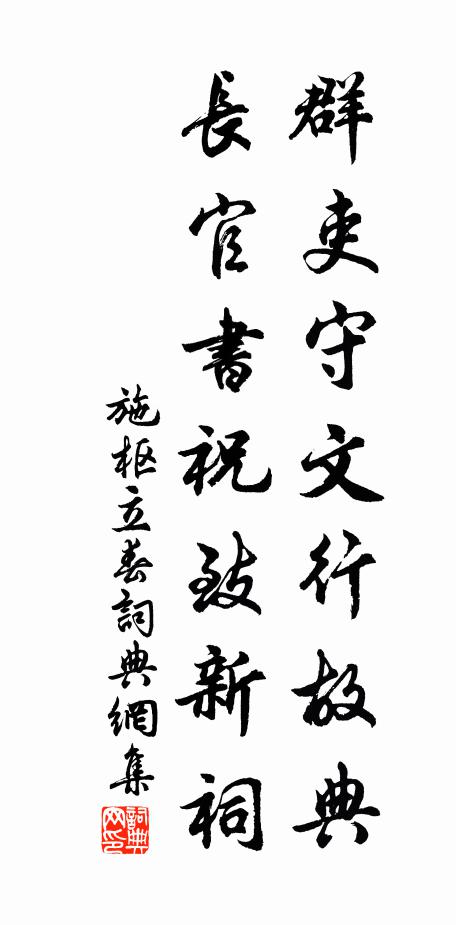 群吏守文行故典
長官書祝致新祠
施枢立春詞典網集
詞典
网印